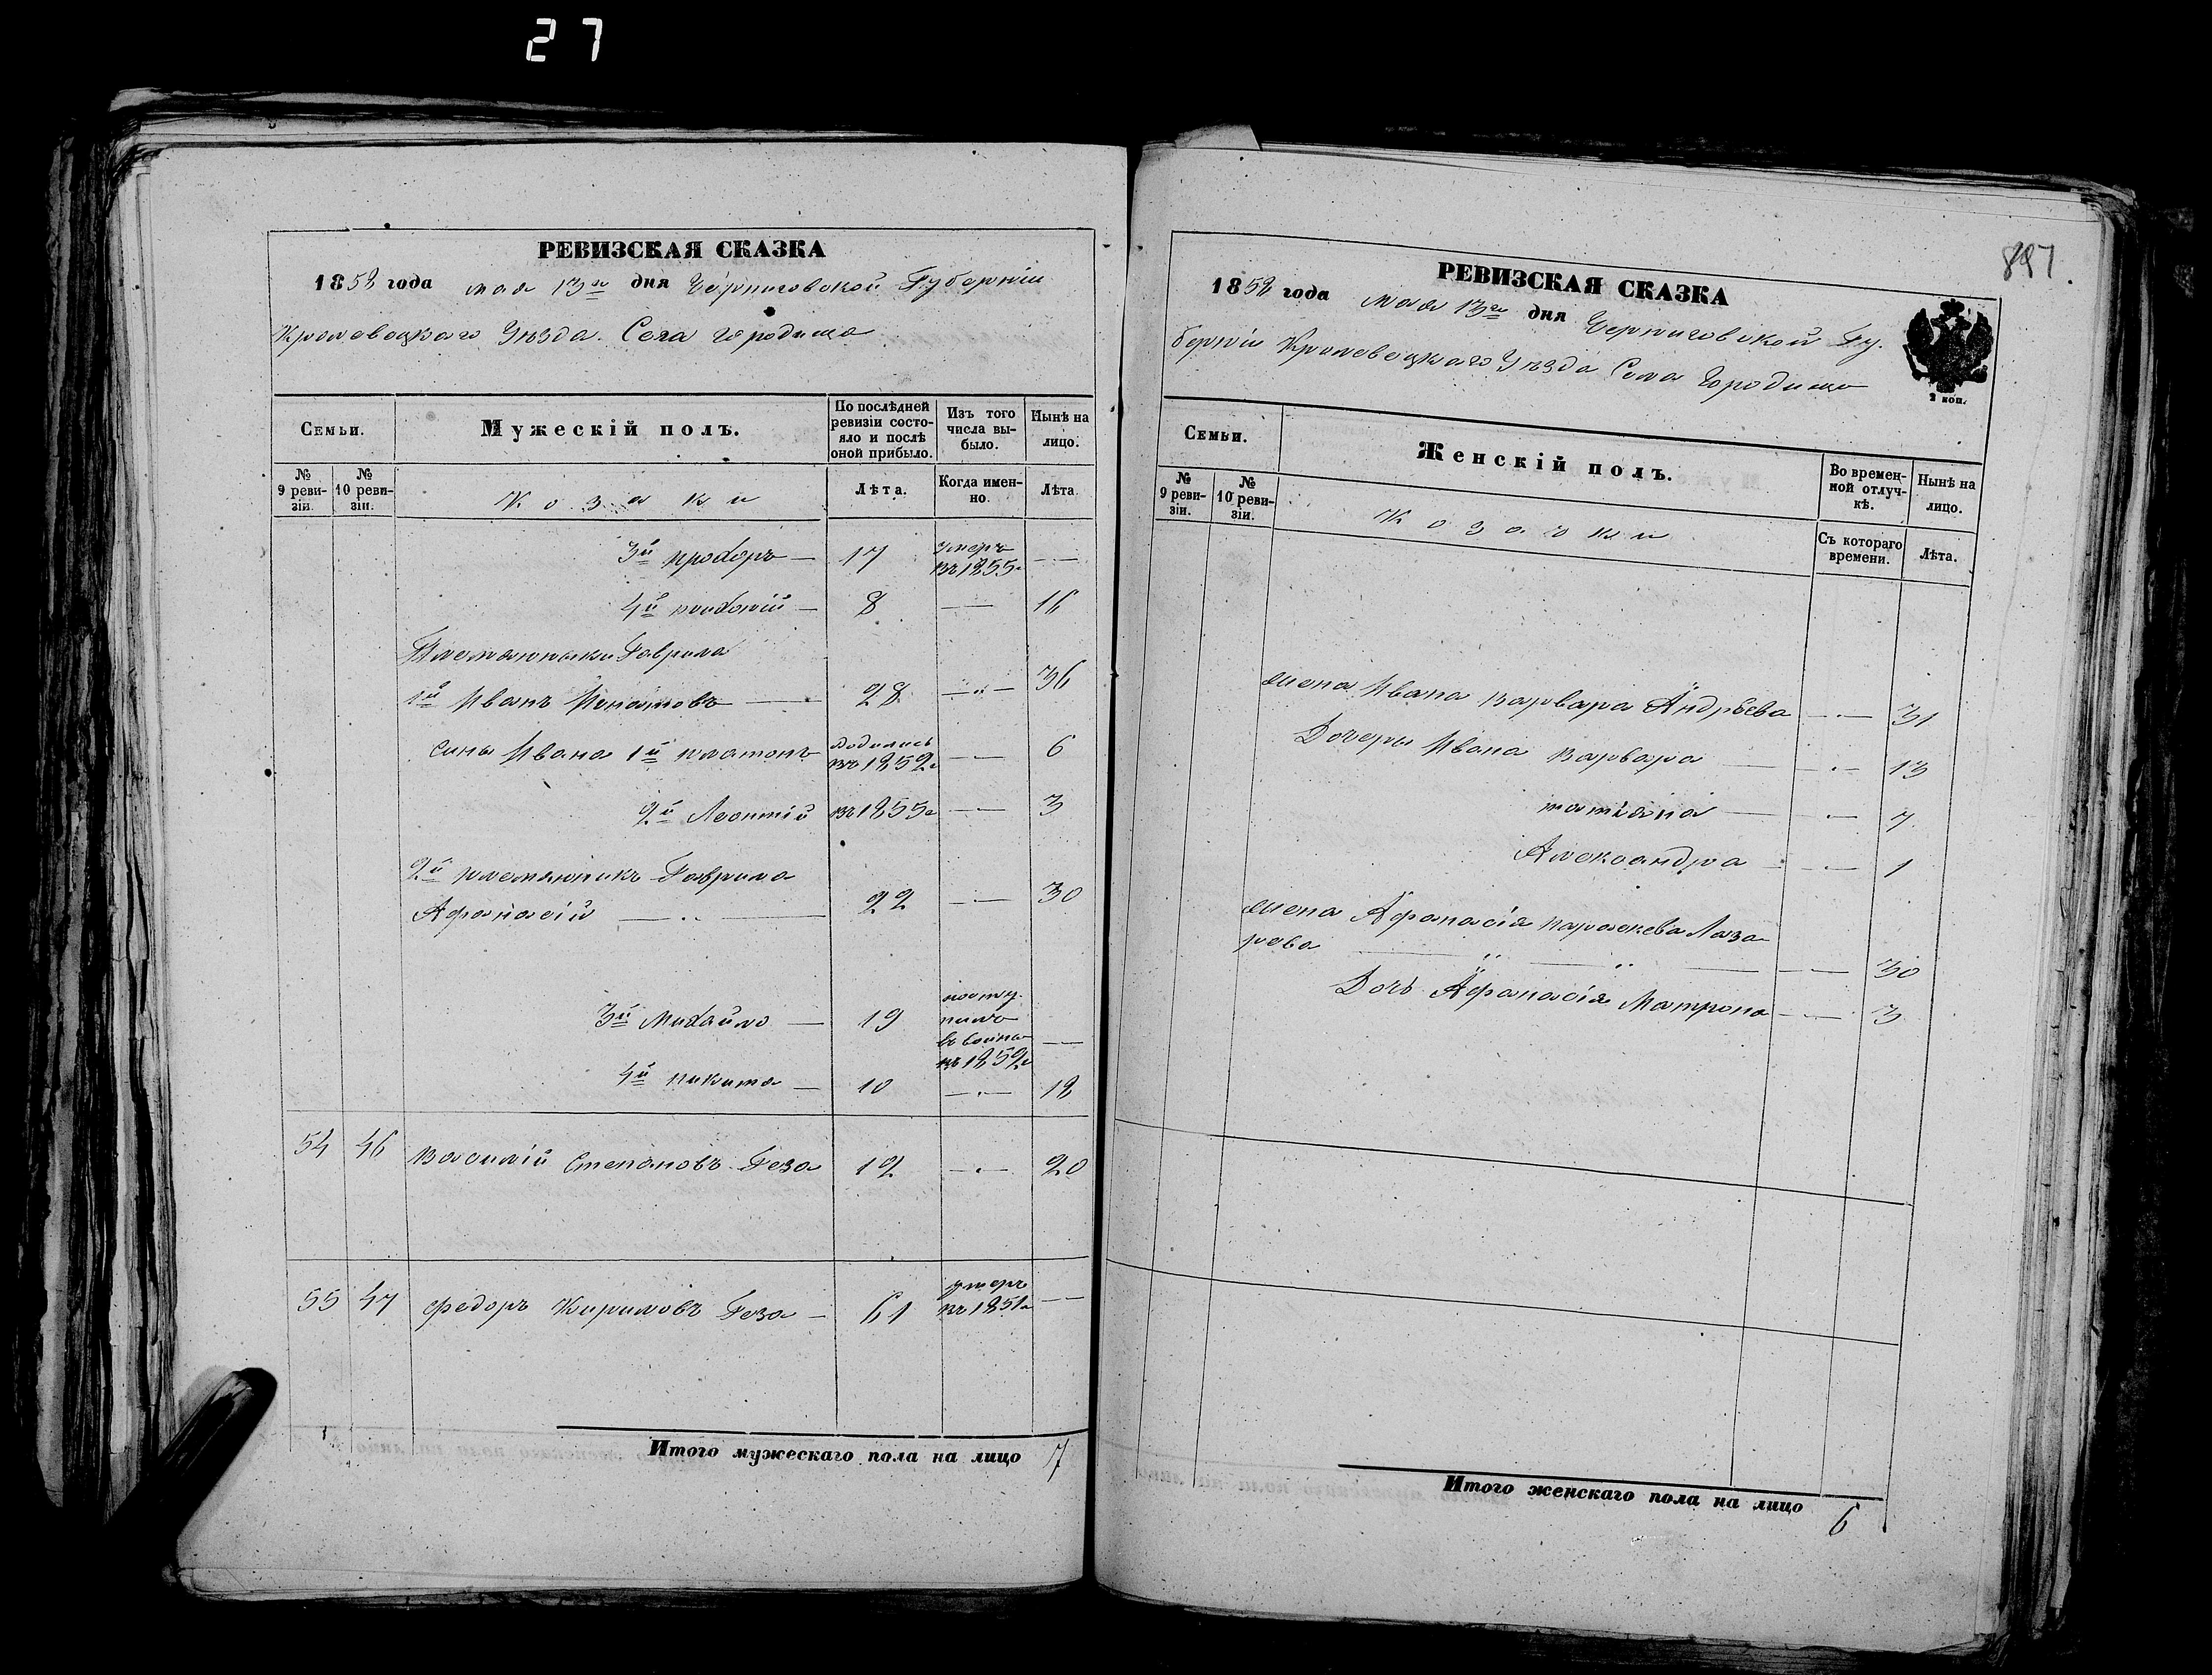 27
РЕВИЗСКАЯ СКАЗКА
1858 года мая 13го дня Черниговской Губерніи
Кролевецкаго Уѣзда. Села Городища
Семьи.
Мужескій полъ.
По послѣдней ревизіи состояло и послѣ оной прибыло.
Изъ того числа выбыло.
Нынѣ на лицо.
№ 9 ревизіи.
№ 10 ревизіи.
Козаки
Лѣта.
Когда именно.
Лѣта.
3й Прохоръ — 17 умеръ въ 1855г —
4й Тихоній — 8 — 16
Племянники Гаврила
1й Иванъ Игнатовъ — 28 — 36
Сины Ивана 1й Платонъ родились въ 1852г — 6
2й Леонтій въ 1855г — 3
2й племянникъ Гаврила
Афанасій — 22 — 30
3й Михайло — 19 —
въ 1852г
4й Никита — 10 — 18
54 46 Василій Степановъ Геза 12 — 20
55 47 Федоръ Кириловъ Геза — 61 умеръ въ 1851г —
Итого мужескаго пола на лицо 7
887.
РЕВИЗСКАЯ СКАЗКА
1858 года мая 13го дня Черниговской Гу.
берніи Кролевецкаго Уѣзда Села Городища
2 коп.
Семьи.
Женскій полъ.
Во временной отлучкѣ.
Нынѣ на лицо.
№ 9 ревизіи.
№ 10 ревизіи.
Козачки
Съ котораго времени.
Лѣта.
Жена Ивана Варвара Андрѣева — 31
Дочеры Ивана Варвара — 13
Татіяна — 7
Александра — 1
Жена Афанасія Параскева Лаза
рева — 30
Дочь Афанасія Матрона — 3
Итого женскаго пола на лицо
6